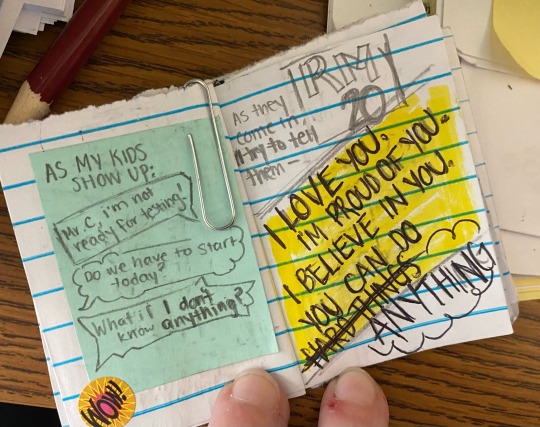 AS MY KIDS
SHOW UP:
Mr. C, i'm not
ready for testing!
Do we have to start
today?
What if I don't
know anything?
WOW!
RM
20
As they
come in,
I try to tell
them —
I LOVE YOU.
I'M PROUD OF YOU.
I BELIEVE IN YOU.
YOU CAN DO
HARD THINGS
ANYTHING